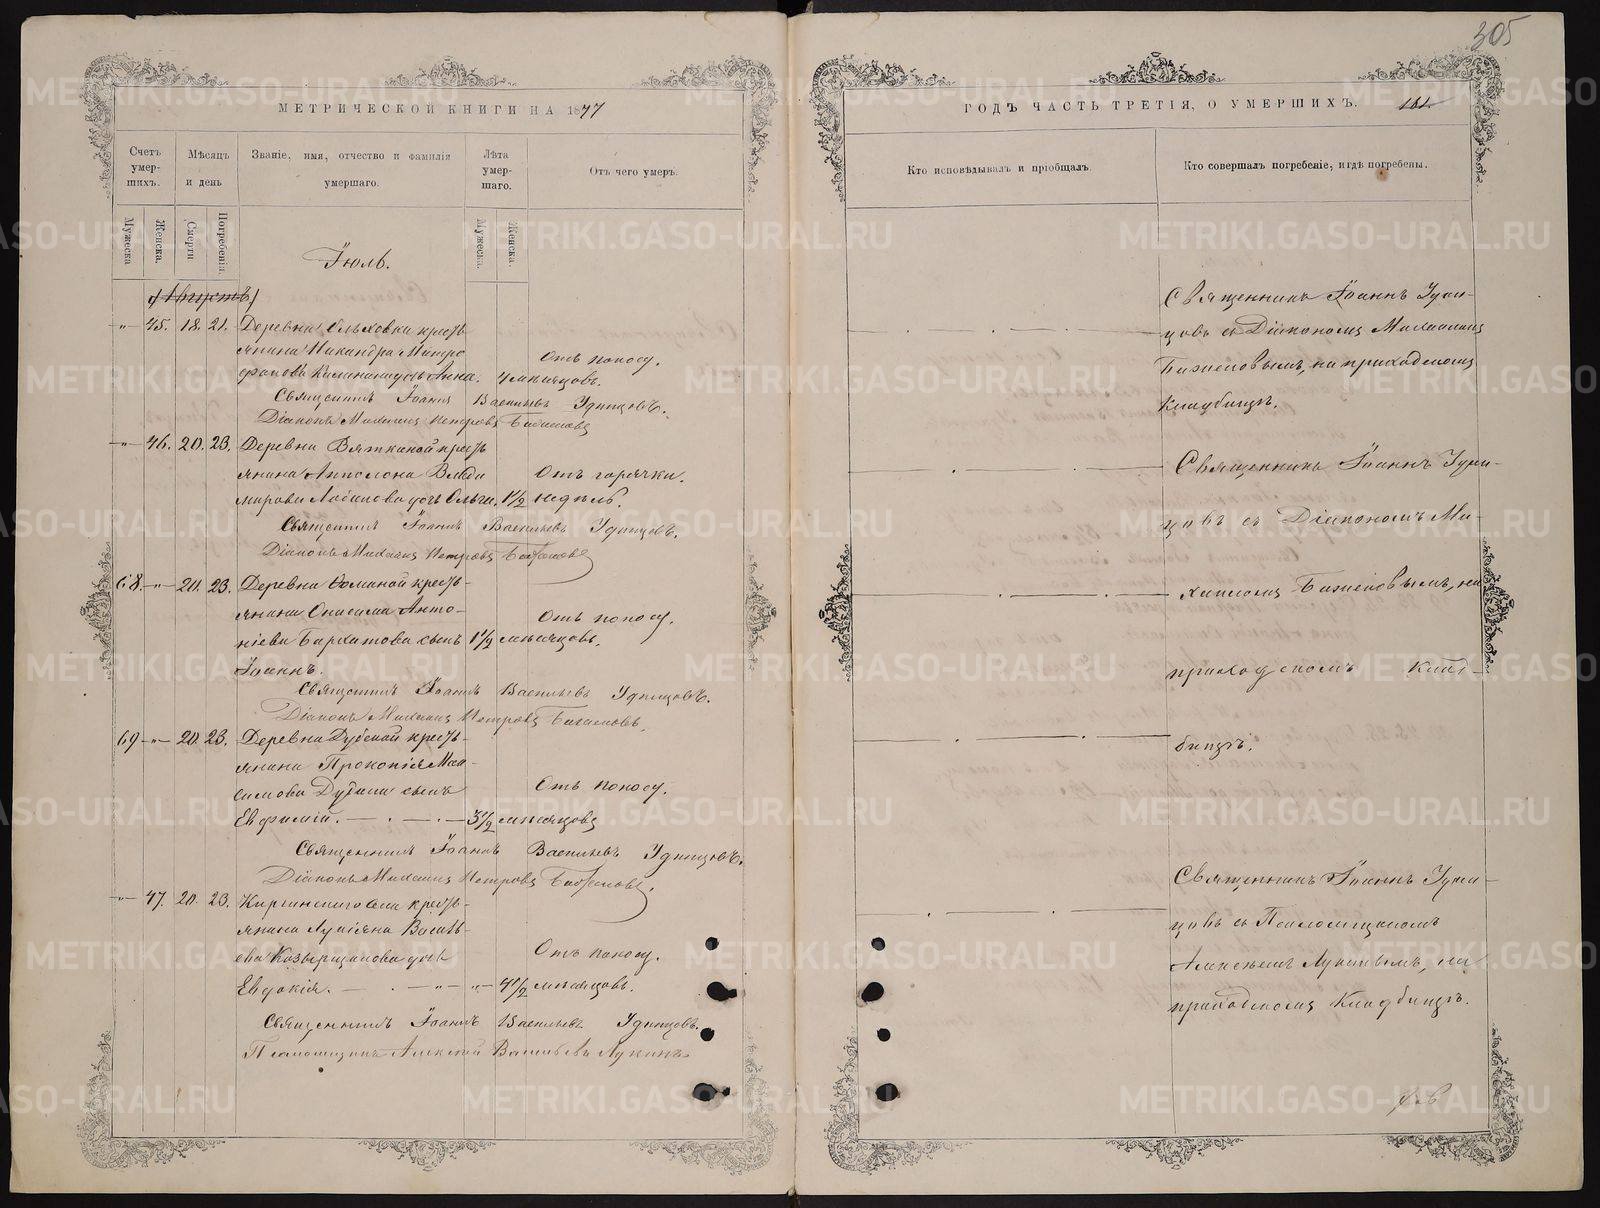 305
МЕТРИЧЕСКОЙ КНИГИ НА 1877
Счетъ умер-шихъ.
Мѣсяцъ и день
Званіе, имя, отчество и фамилія умершаго.
Лѣта умер-шаго.
Отъ чего умеръ.
Мужеска
Женска.
Смерти
Погребенія.
Мужеска.
Женска.
Іюль.
(Августъ)
" 45. 18. 21. Деревни Ольховки кресть-
янина Никандра Митро
фанова дочь Анна. 4 мѣсяцовъ.
Отъ поносу.
Священникъ Іоаннъ Васильевъ Удинцовъ.
Діаконъ Михаилъ Петровъ
" 46. 20. 23. Деревни Вяткиной кресть
янина Аполона Влади
мирова Лобанова дочь Ольга. 1 1/2 недѣль.
Отъ горячки.
Священникъ Іоаннъ Васильевъ Удинцовъ.
Діаконъ Михаилъ Петровъ
68. " 20. 23. Деревни кресть-
янина Анто-
ніева Бархатова сынъ 1 1/2 мѣсяцовъ.
Іоаннъ.
Отъ поносу.
Священникъ Іоаннъ Васильевъ Удинцовъ.
Діаконъ Михаилъ Петровъ
69 " 20. 23. Деревни Дубской кресть-
янина Прокопія Мак-
симова сынъ
Отъ поносу.
Евфимій. 3 1/2 мѣсяцовъ
Священникъ Іоаннъ Васильевъ Удинцовъ.
Діаконъ Михаилъ Петровъ
" 47. 20. 23. Киргинскаго села кресть-
янина Лукіяна Василь-
ева дочь
Отъ поносу.
Евдокія. " " 4 1/2 мѣсяцовъ.
Священникъ Іоаннъ Васильевъ Удинцовъ.
Псаломщикъ Алексѣй Васильевъ Лукинъ
ГОДЪ ЧАСТЬ ТРЕТІЯ, О УМЕРШИХЪ.
Кто исповѣдывалъ и пріобщалъ.
Кто совершалъ погребеніе, и гдѣ погребены.
Священникъ Іоаннъ Удин-
цовъ съ Діакономъ Михаиломъ
на приходскомъ
кладбищѣ.
Священникъ Іоаннъ Удин-
цовъ съ Діакономъ Ми-
хаиломъ на
приходскомъ клад-
бищѣ.
Священникъ Іоаннъ Удин-
цовъ съ Псаломщикомъ
Алексѣемъ Лукинымъ, на
приходскомъ кладбищѣ.
METRIKI.GASO-URAL.RU